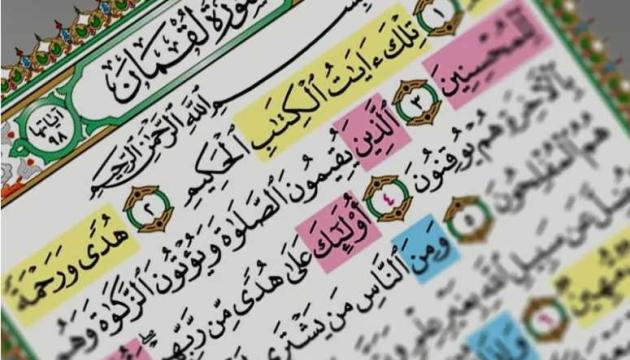 سُورَةُ لُقْمَانَ
آيَاتُهَا
٩٨
بِسْمِ ٱللَّهِ ٱلرَّحْمَٰنِ ٱلرَّحِيمِ
١ تِلْكَ ءَايَٰتُ ٱلْكِتَٰبِ ٱلْحَكِيمِ ٢ هُدًى وَرَحْمَةً
لِّلْمُحْسِنِينَ ٣ ٱلَّذِينَ يُقِيمُونَ ٱلصَّلَوٰةَ وَيُؤْتُونَ ٱلزَّكَوٰةَ وَهُم
بِٱلْأَخِرَةِ هُمْ يُوقِنُونَ ٤ أُوْلَٰٓئِكَ عَلَىٰ هُدًى مِّن رَّبِّهِمْ
هُمُ ٱلْمُفْلِحُونَ ٥ وَمِنَ ٱلنَّاسِ مَن يَشْتَرِى
عَن سَبِيلِ ٱللَّهِ بِغَيْرِ عِلْمٍ
مُّهِينٌ ٦ وَإِذَا